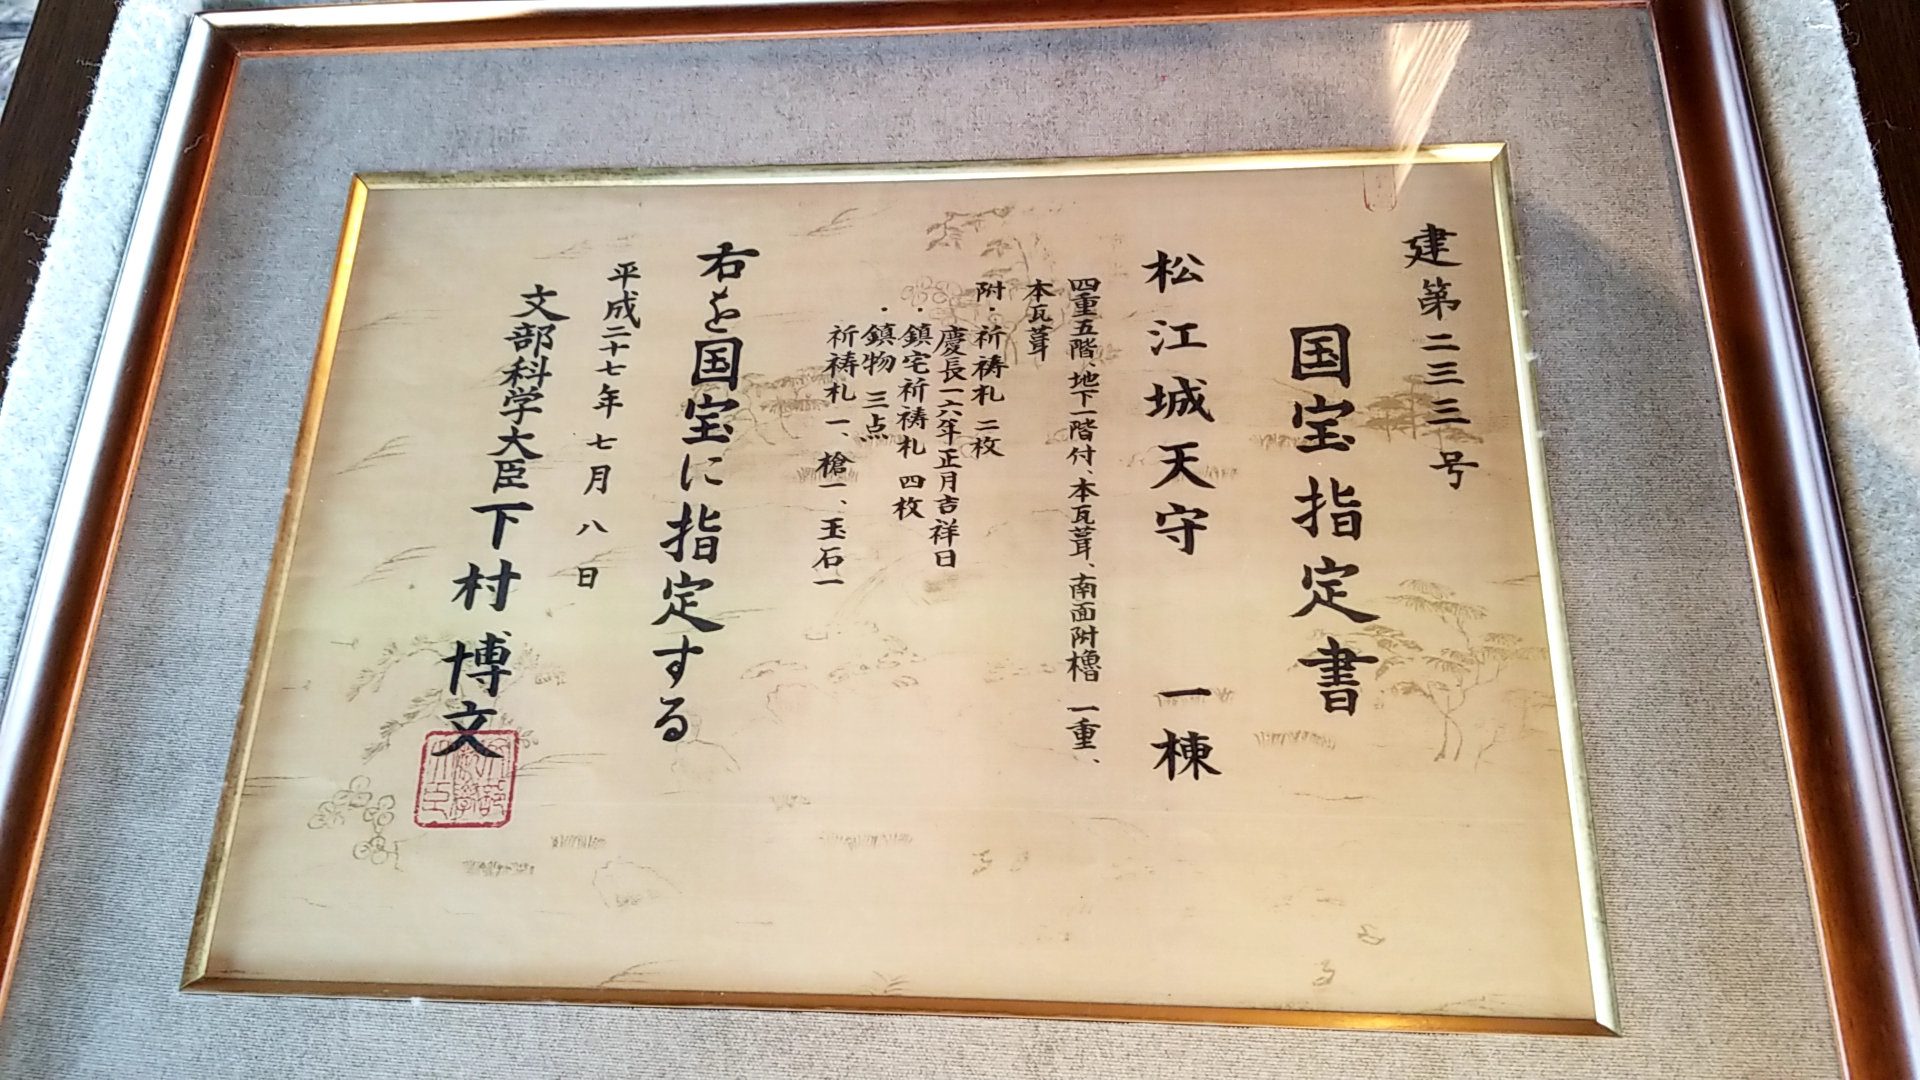 建第二三三号
国宝指定書
松江城天守　一棟
四重五階、地下一階付、本瓦葺、南面附櫓　一重、
本瓦葺
附・祈祷札 二枚
慶長一六年正月吉祥日
・鎮宅祈祷札 四枚
・鎮物 三点
祈祷札 一、槍一、玉石一
右を国宝に指定する
平成二十七年七月八日
文部科学大臣 下村博文